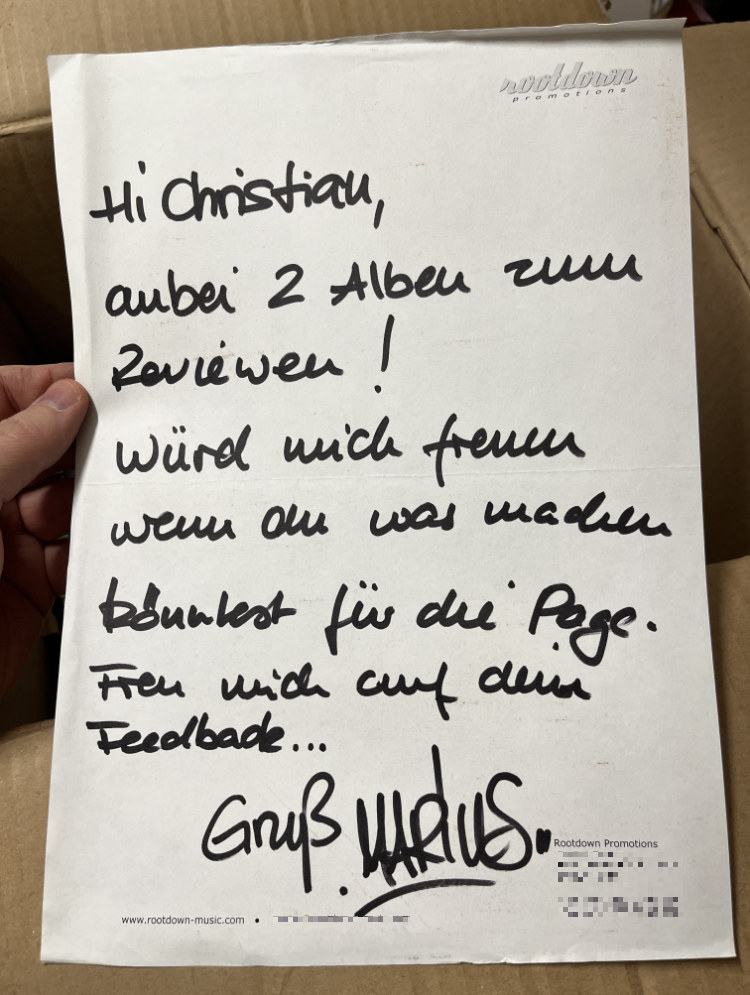 rootdown
promotions
Hi Christian,
anbei 2 Alben zum
Reviewen!
Würd mich freuen
wenn du was machen
könntest für die Page.
Freu mich auf dein
Feedback...
Gruß MARIUS.
Rootdown Promotions
www.rootdown-music.com •